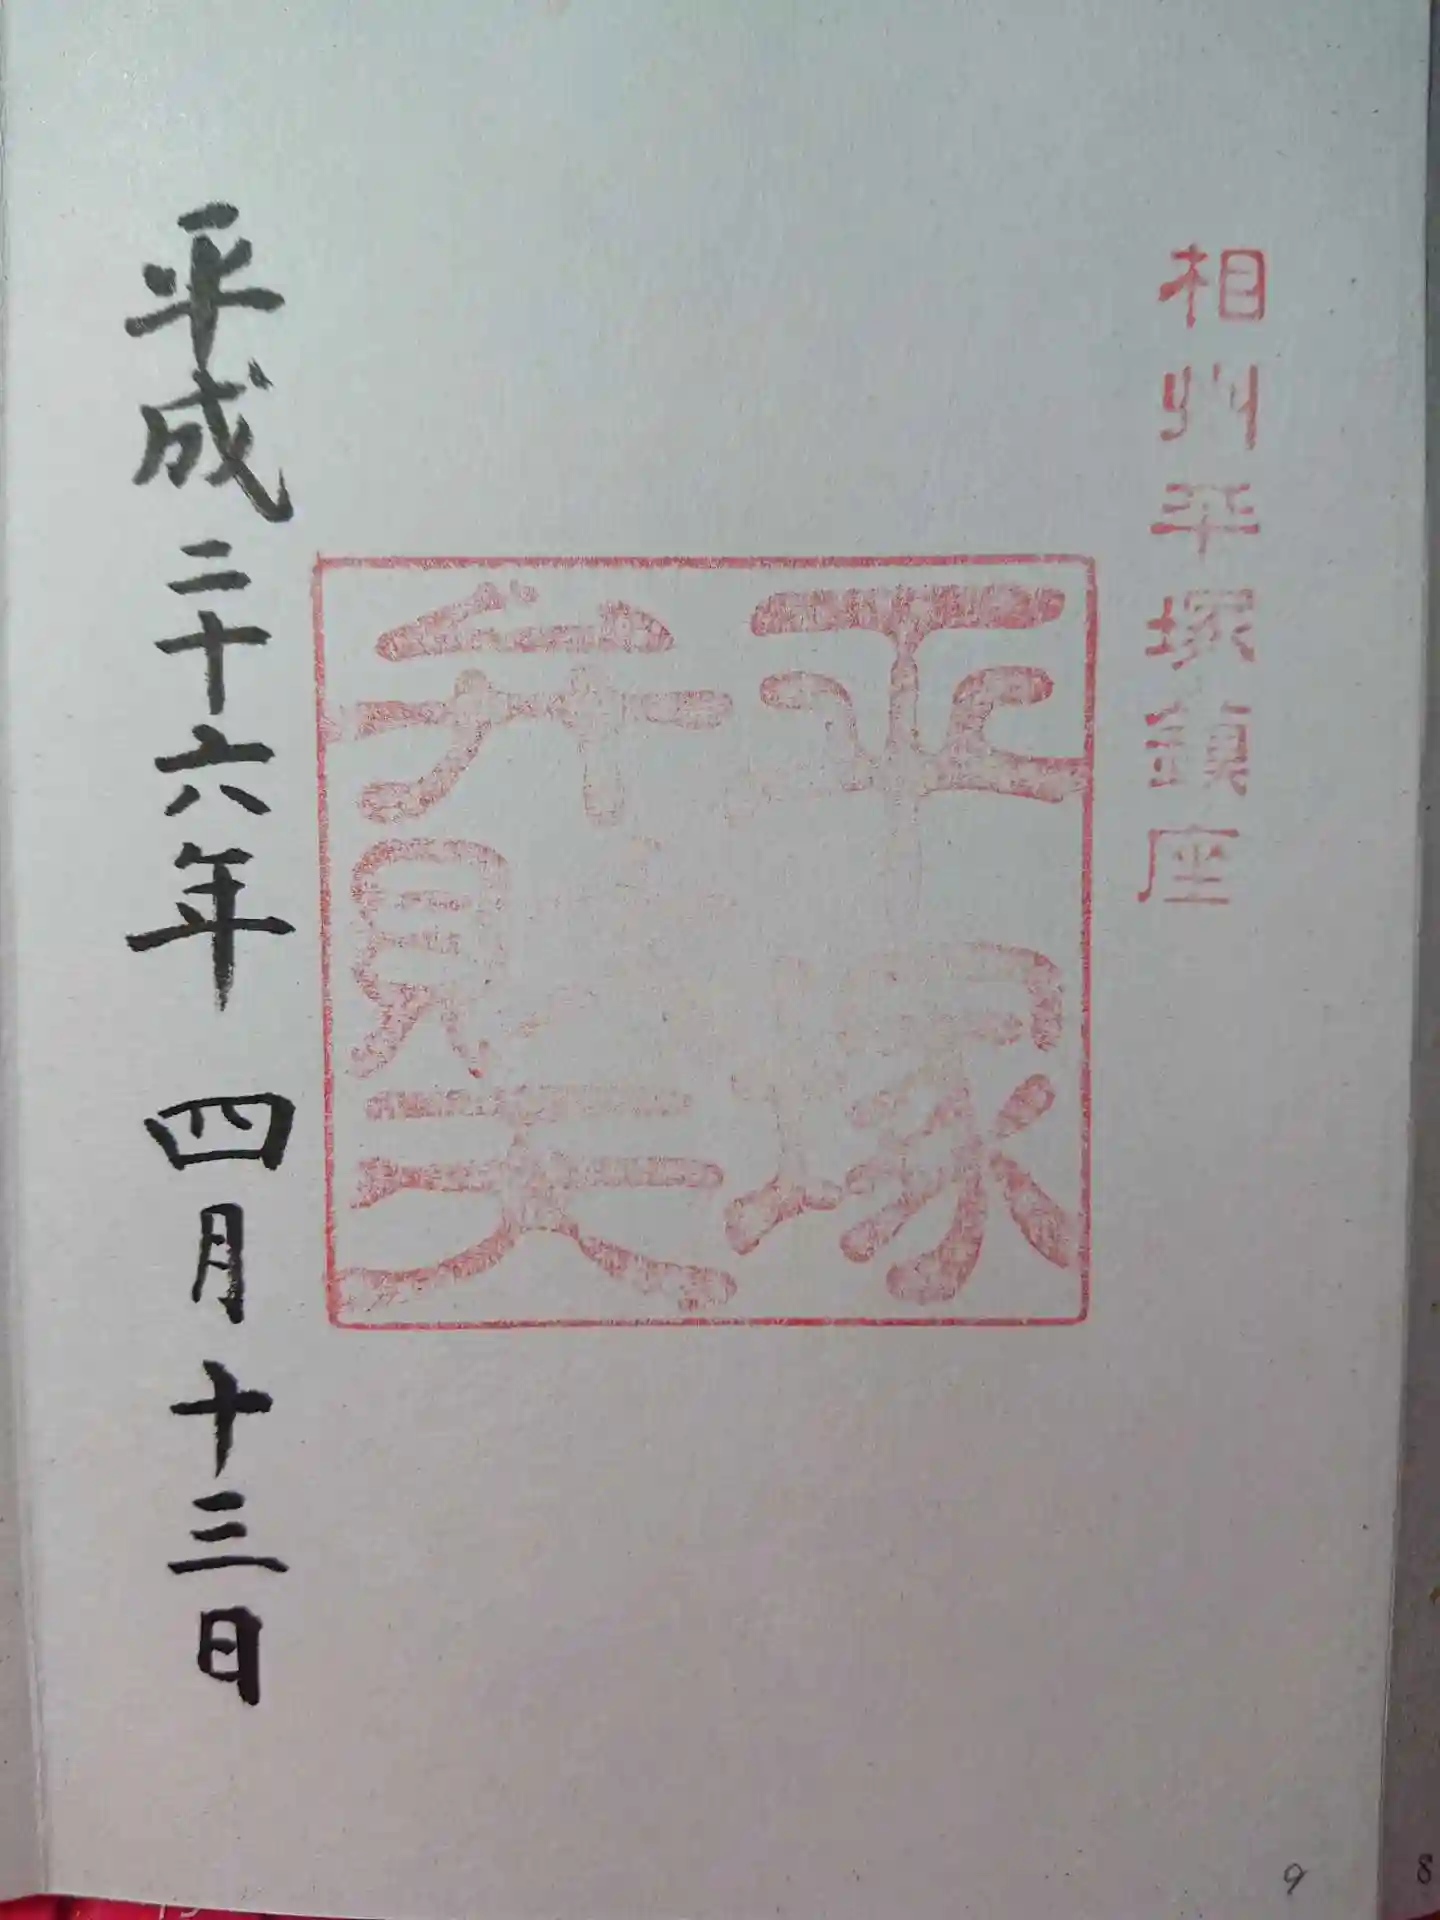 相州平塚鎮座
平塚
弁財天
平成二十六年 四月十三日
9
8